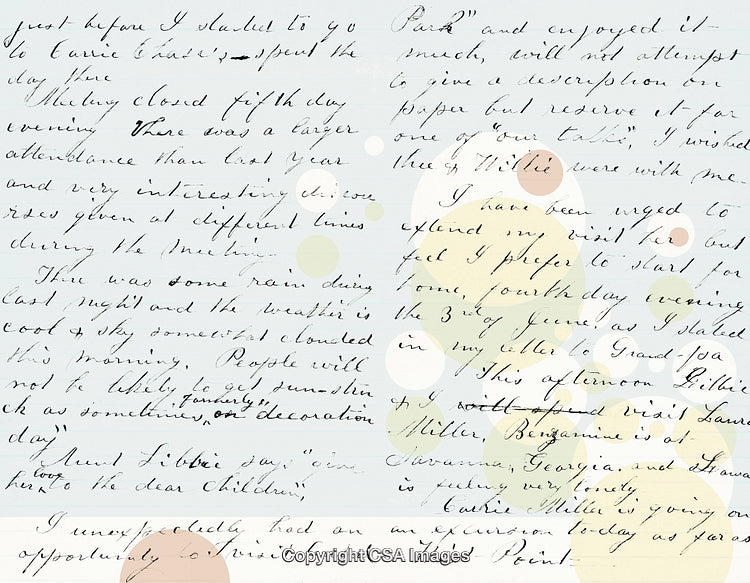 just before I started to go
to Carrie Chase's - spent the
day there
Meeting closed fifth day
evening There was a larger
attendance than last year
and very interesting discou
rses given at different times
during the meeting.
There was some rain during
last night and the weather is
cool & sky somewhat clouded
this morning. People will
not be likely to get sun-stru
ck as sometimes, formerly on "decoration
day"
Aunt Libbie says "give
her love to the dear children",
I unexpectedly had an
opportunity to visit
Park" and enjoyed it
much, will not attempt
to give a description on
paper but reserve it for
one of "our talks", I wished
thee & Willie were with me-
I have been urged to
extend my visit her but
feel I prefer to start for
home, fourth day evening
the 3rd of June. as I stated
in my letter to Grand-pa
This afternoon Libbie
& I will spend visit Laura
Miller, Benjamine is at
Savanna, Georgia. and Laura
is feeling very lonely
Carrie Miller is going on
an excursion to-day as far as
Point-
Copyright CSA Images